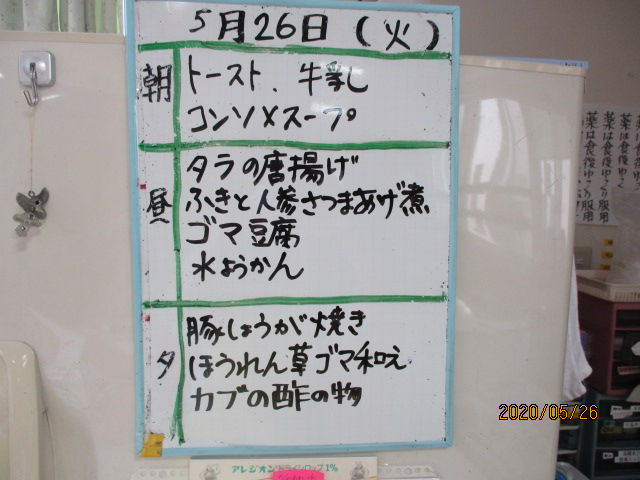 5月26日(火)
朝
トースト、牛乳
コンソメスープ
昼
タラの唐揚げ
ふきと人参さつまあげ煮
ゴマ豆腐
水ようかん
夕
豚しょうが焼き
ほうれん草ゴマ和え
カブの酢の物
薬は食後ゆっくり服用
薬は食後ゆ
アレジオンドライシロップ1%
2020/05/26